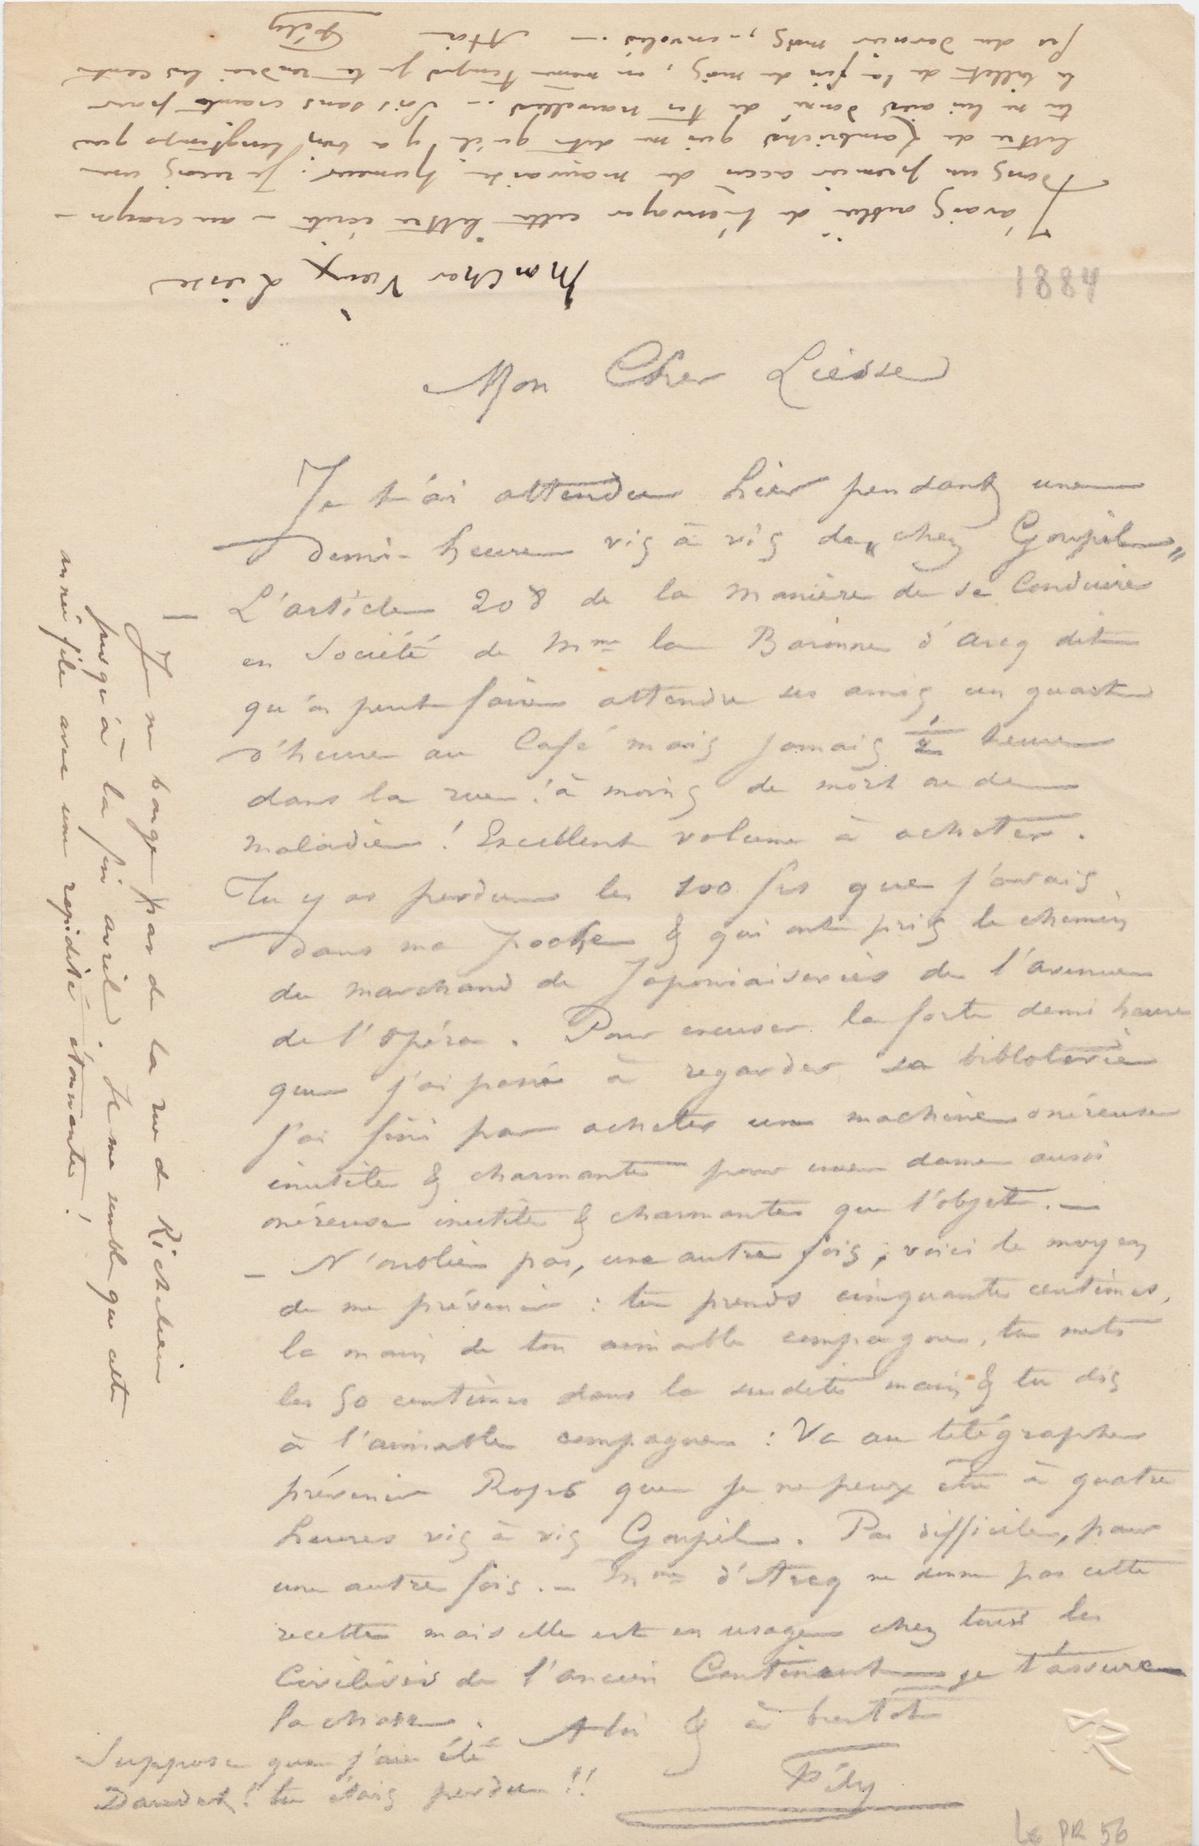 1884
Mon Cher Vieux Liesse
J'avais oublié de t'envoyer cette lettre écrite – au crayon –
Dans un premier accès de mauvaise humeur! Je reçois une
lettre de qui me dit qu'il y a bien longtemps que
tu ne lui aies donné de tes nouvelles. – Sois sans crainte pour
le billet de la fin du mois, en même temps je te rendrai les cent
frs du dernier mois, – A toi – Fély
Mon Cher Liesse
Je t'ai attendu hier pendant une
demi-heure vis à vis de "chez Goupil"
– L'article 208 de la Manière de se Conduire
en Société de Mme la Baronne d'Arcq dit
qu'on peut faire attendre ses amis un quart
d'heure au Café mais jamais ½ heure
dans la rue! à moins de mort ou de
maladie! Excellent volume à acheter.
Tu y as perdu les 100 frs que j'avais
dans ma poche & qui ont pris le chemin
du marchand de Japoniaiseries de l'avenue
de l'Opéra. Pour excuser la forte demi heure
que j'ai passé à regarder sa bibloterie
j'ai fini par acheter une machine onéreuse
inutile & charmante pour une dame aussi
onéreuse inutile & charmante que l'objet. –
– N'oublie pas, une autre fois, voici le moyen
de me prévenir : tu prends cinquante centimes,
la main de ton aimable compagne, tu mets
les 50 centimes dans la susdite main & tu dis
à l'aimable compagne : Va au télégraphe
prévenir Rops que je ne peux être à quatre
heures vis à vis Goupil. Pas difficile, pour
une autre fois. – Mme d'Arcq ne donne pas cette
recette mais elle est en usage chez tous les
Civilisés de l'ancien Continent je t'assure
la chose. A toi & à bientôt
Fély
Suppose que j'aie été
Daudet! tu étais perdu!!
Je ne bouge pas de la rue de Richelieu
jusqu'à la fin avril. Il me semble que cette
année file avec une rapidité étonnante!
R
LE PR 56